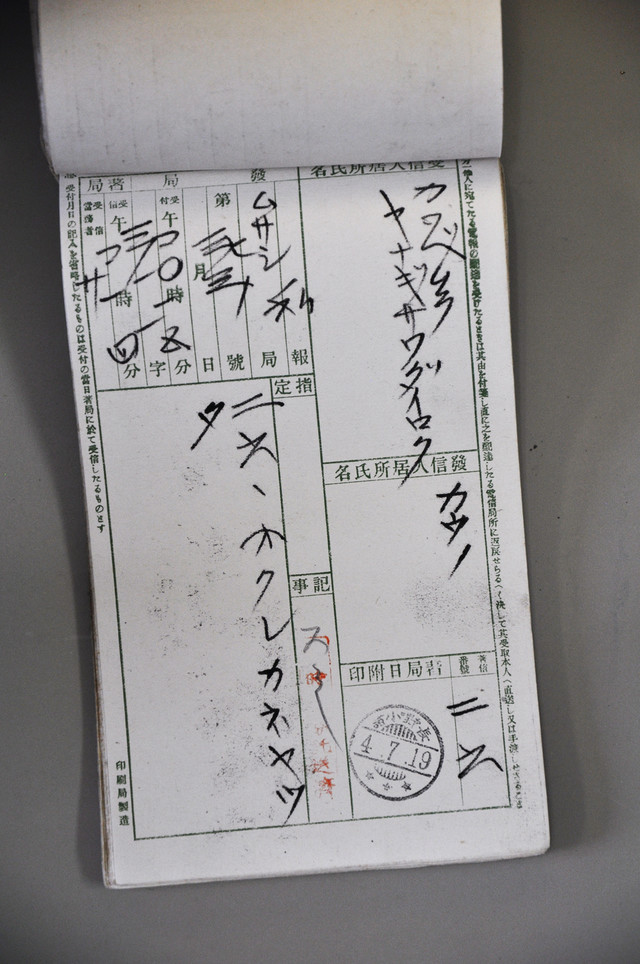 他人に宛てたる電報の配達を受けたるときは其由を付箋し直に之を配達したる電信局所に返戻せらるへく決して其受取本人へ直送し又は手渡しせさること
受信人居所氏名
ヤナギサワダイロク
發信人居所氏名
カウノ
着信番號
二六
着局日附印
4.7.19
指定
記事
發局
ムサシ
報
局
第
號
月
日
受付
午
時
分
字
着局
受信
午
時
分
當務者
二六、ホクレカネヤツ
タ
受付月日の記入を省略したるものは受付の当日着局に於て受信したるものとす
印刷局製造